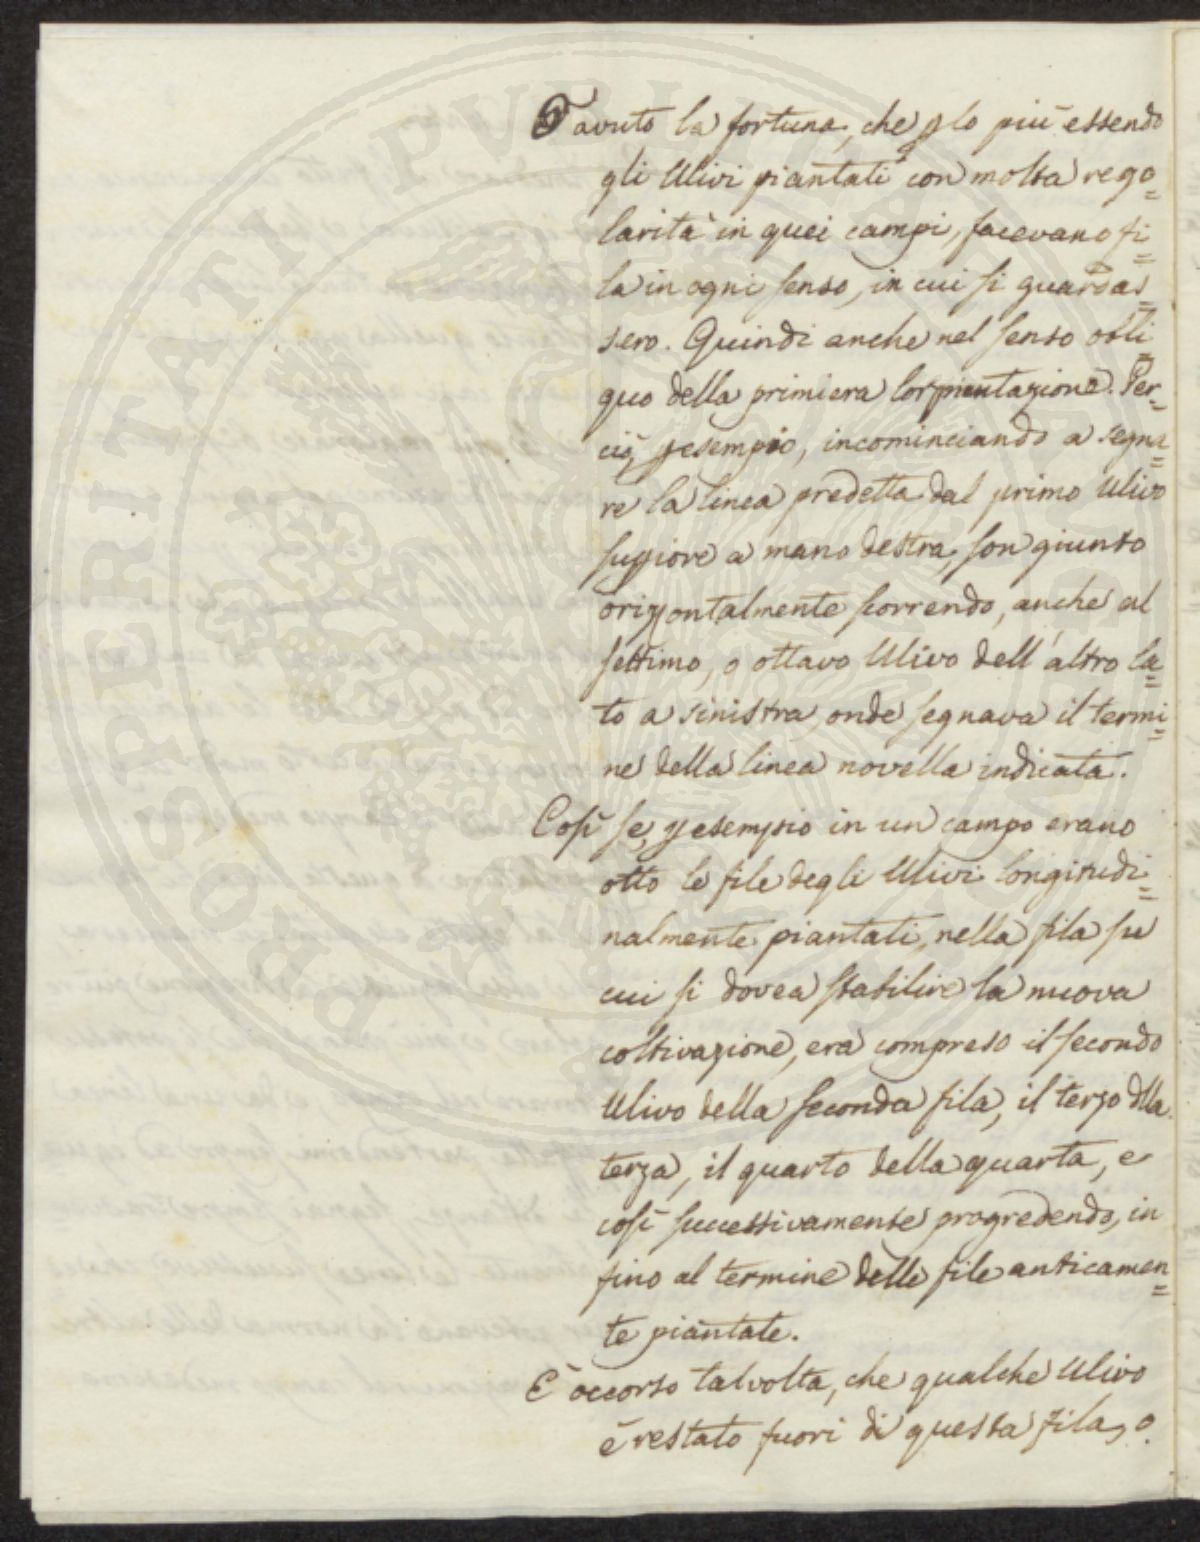 Ò avuto la fortuna, che plo più essendo
gli Ulivi piantati con molta rego=
larità in quei campi, facevano fi=
la in ogni senso, in cui si guardas=
sero. Quindi anche nel senso obli=
quo della primiera lor piantazione. Per=
ciò, p esempio, incominciando a segna=
re la linea predetta dal primo Ulivo
supiore a mano destra, son giunto
orizzontalmente scorrendo, anche al
settimo, o ottavo Ulivo dell'altro la=
to a sinistra, onde segnava il termi=
ne della linea novella indicata.
Così se, p esempio in un campo erano
otto le file degli Ulivi longitudi=
nalmente piantati, nella fila su
cui si dovea stabilire la nuova
coltivazione, era compreso il secondo
Ulivo della seconda fila, il terzo dlla
terza, il quarto della quarta, e
così successivamente progredendo, in
fino al termine delle file anticamen=
te piantate.
È occorso talvolta, che qualche Ulivo
è restato fuori di questa fila, o
PROSPERITATI PVBLICAE